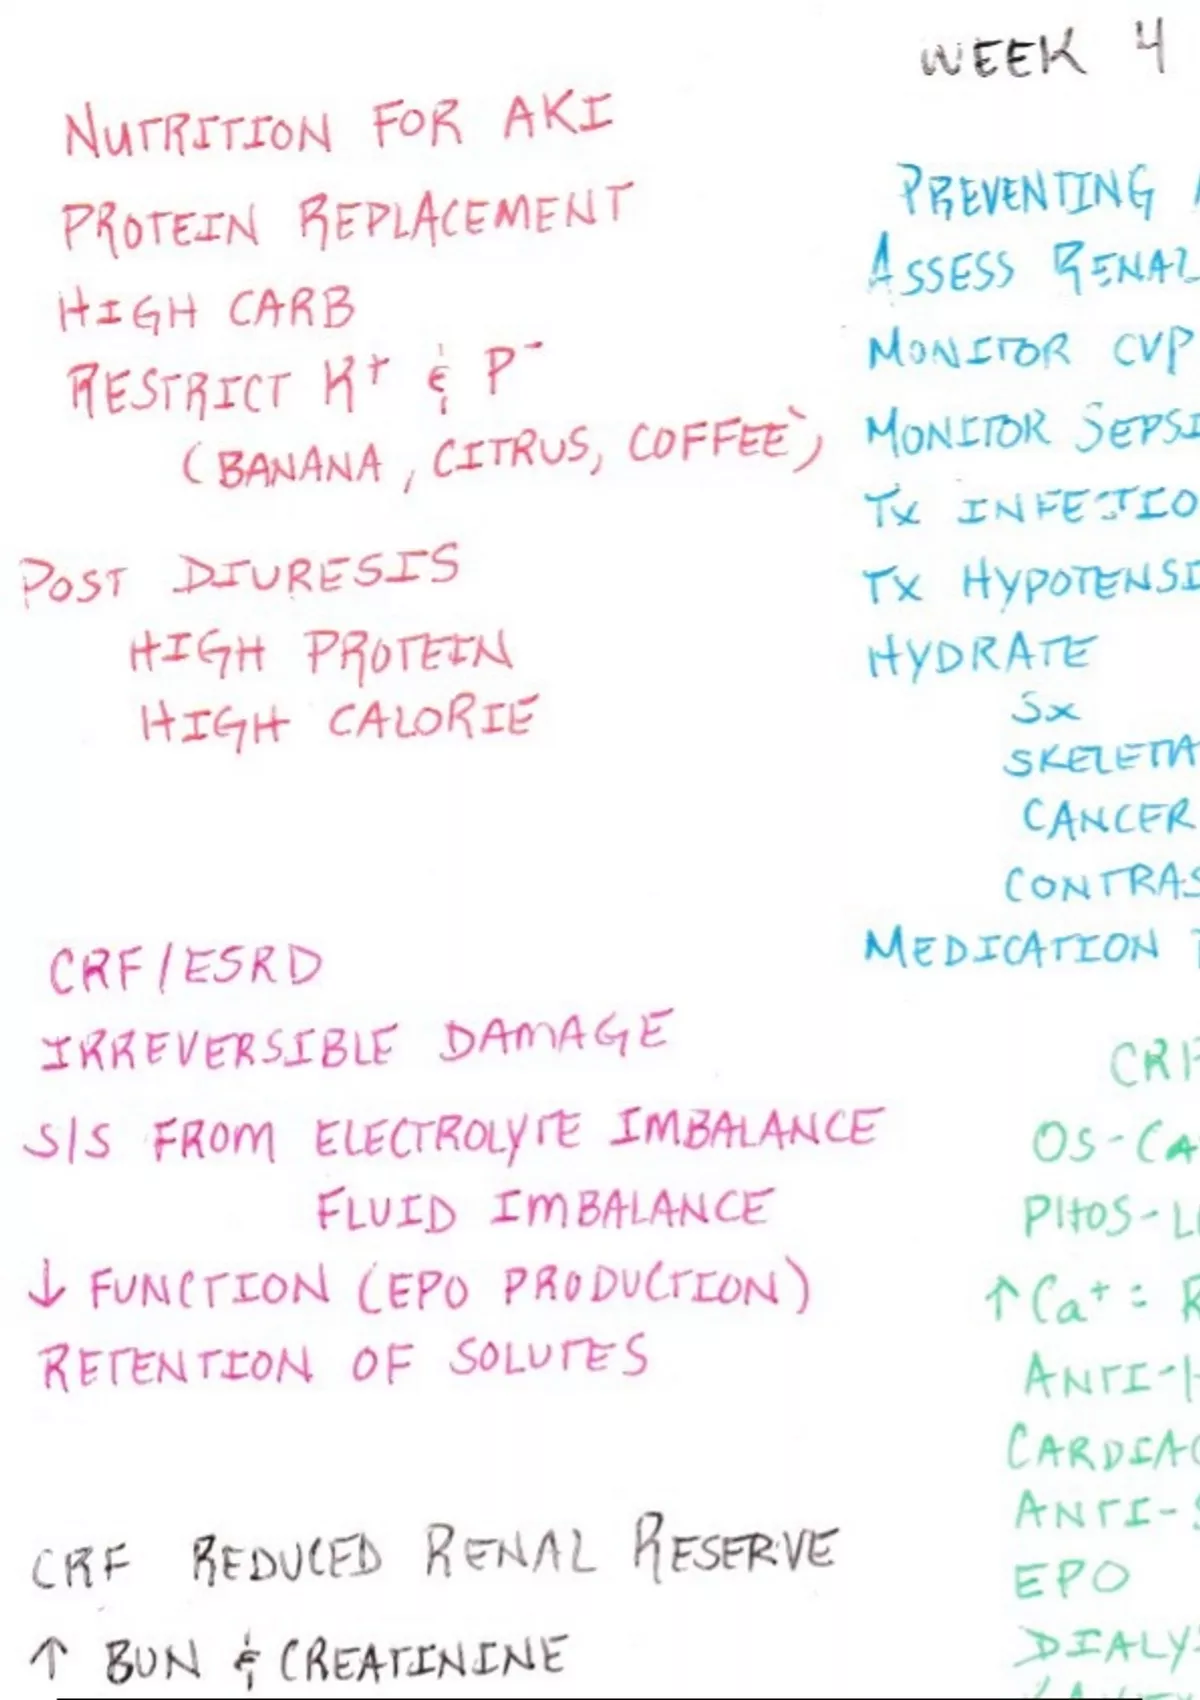 WEEK 4
NUTRITION FOR AKI
PROTEIN REPLACEMENT
HIGH CARB
RESTRICT K+ & P-
(BANANA, CITRUS, COFFEE)
POST DIURESIS
HIGH PROTEIN
HIGH CALORIE
CRF/ESRD
IRREVERSIBLE DAMAGE
S/S FROM ELECTROLYTE IMBALANCE
FLUID IMBALANCE
↓ FUNCTION (EPO PRODUCTION)
RETENTION OF SOLUTES
CRF REDUCED RENAL RESERVE
↑ BUN & CREATININE
PREVENTING
ASSESS RENAL
MONITOR CVP
MONITOR SEPSI
Tx INFECTIO
Tx HYPOTENSI
HYDRATE
Sx
SKELETA
CANCER
CONTRAS
MEDICATION
CRF
OS-CA
PHOS-L
↑ Ca+ = R
ANTI-H
CARDIAC
ANTI-S
EPO
DIALYS